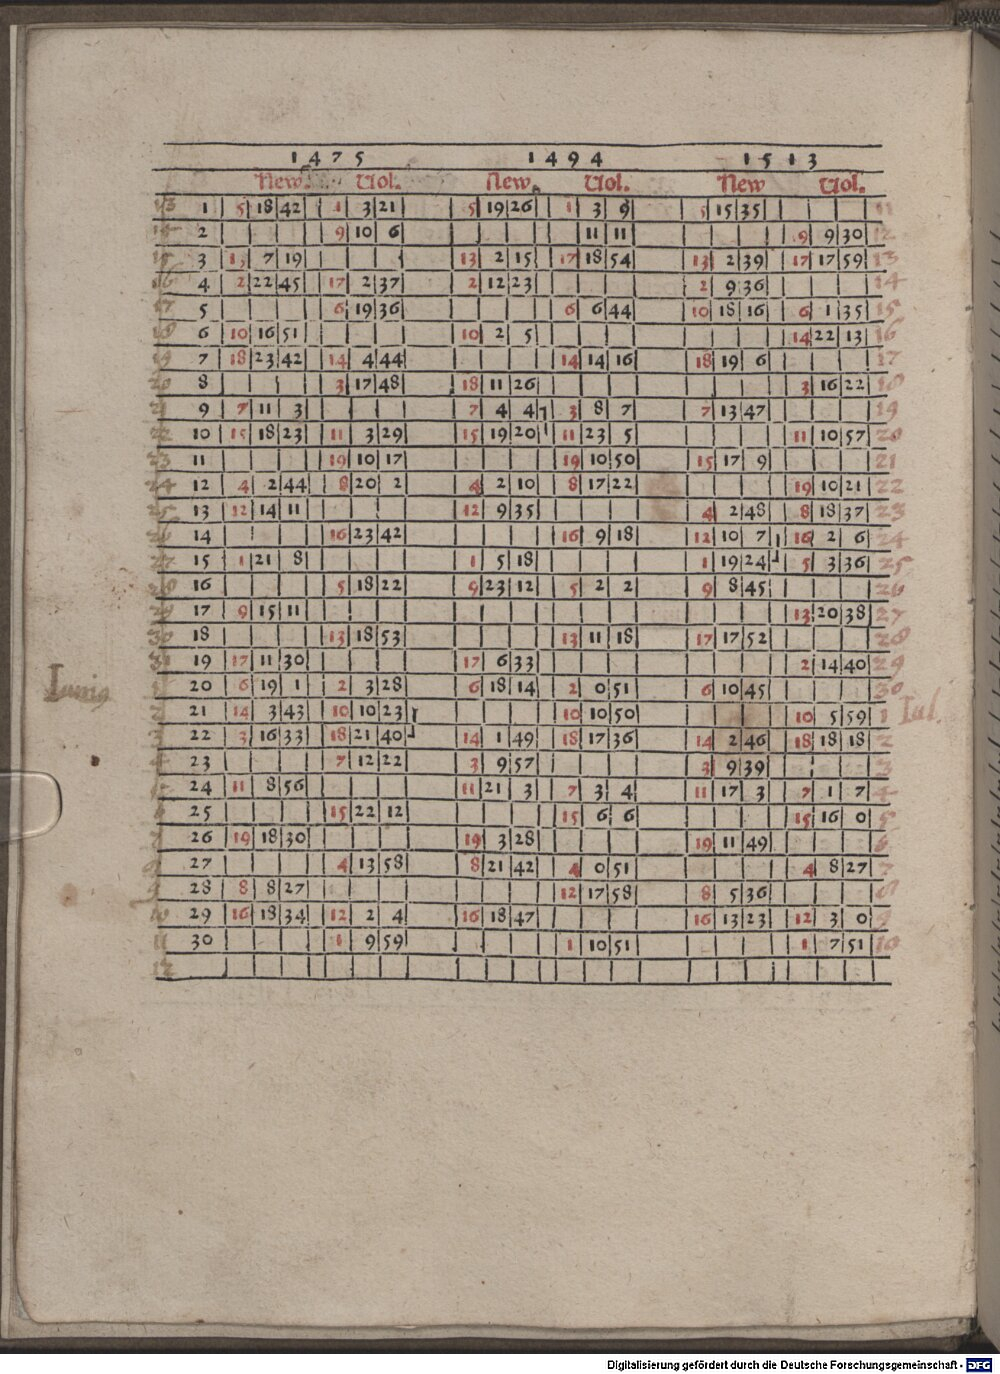 1475 1494 1513
New. Vol. New. Vol. New Vol.
1 5 18 42 1 3 21 5 19 26 1 3 9 5 15 35 11
2 9 10 6 11 11 9 9 30 12
3 13 7 19 13 2 15 17 18 54 13 2 39 17 17 59 13
4 2 22 45 17 2 37 2 12 23 2 9 36 14
5 6 19 36 6 6 44 10 18 16 6 1 35 15
6 10 16 51 10 2 5 14 22 13 16
7 18 23 42 14 4 44 14 14 16 18 19 6 17
8 3 17 48 18 11 26 3 16 22 18
9 7 11 3 7 4 4 3 8 7 7 13 47 19
10 15 18 23 11 3 29 15 19 20 11 23 5 11 10 57 20
11 19 10 17 19 10 50 15 17 9 21
12 4 2 44 8 20 2 4 2 10 8 17 22 19 10 21 22
13 12 14 11 12 9 35 4 2 48 8 18 37 23
14 16 23 42 16 9 18 12 10 7 16 2 6 24
15 1 21 8 1 5 18 1 19 24 5 3 36 25
16 5 18 22 9 23 12 5 2 2 9 8 45 26
17 9 15 11 13 20 38 27
18 13 18 53 13 11 18 17 17 52 28
19 17 11 30 17 6 33 2 14 40 29
Iunig 20 6 19 1 2 3 28 6 18 14 2 0 51 6 10 45 30
21 14 3 43 10 10 23 10 10 50 10 5 59 1 Iul.
22 3 16 33 18 21 40 14 1 49 18 17 36 14 2 46 18 18 18 2
23 7 12 22 3 9 57 3 9 39 3
24 11 8 56 11 21 3 7 3 4 11 17 3 7 1 7 4
25 15 22 12 15 6 6 15 16 0 5
26 19 18 30 19 3 28 19 11 49 6
27 4 13 58 8 21 42 4 0 51 4 8 27 7
28 8 8 27 12 17 58 8 5 36 8
29 16 18 34 12 2 4 16 18 47 16 13 23 12 3 0 9
30 1 9 59 1 10 51 1 7 51 10
Digitalisierung gefördert durch die Deutsche Forschungsgemeinschaft - DFG